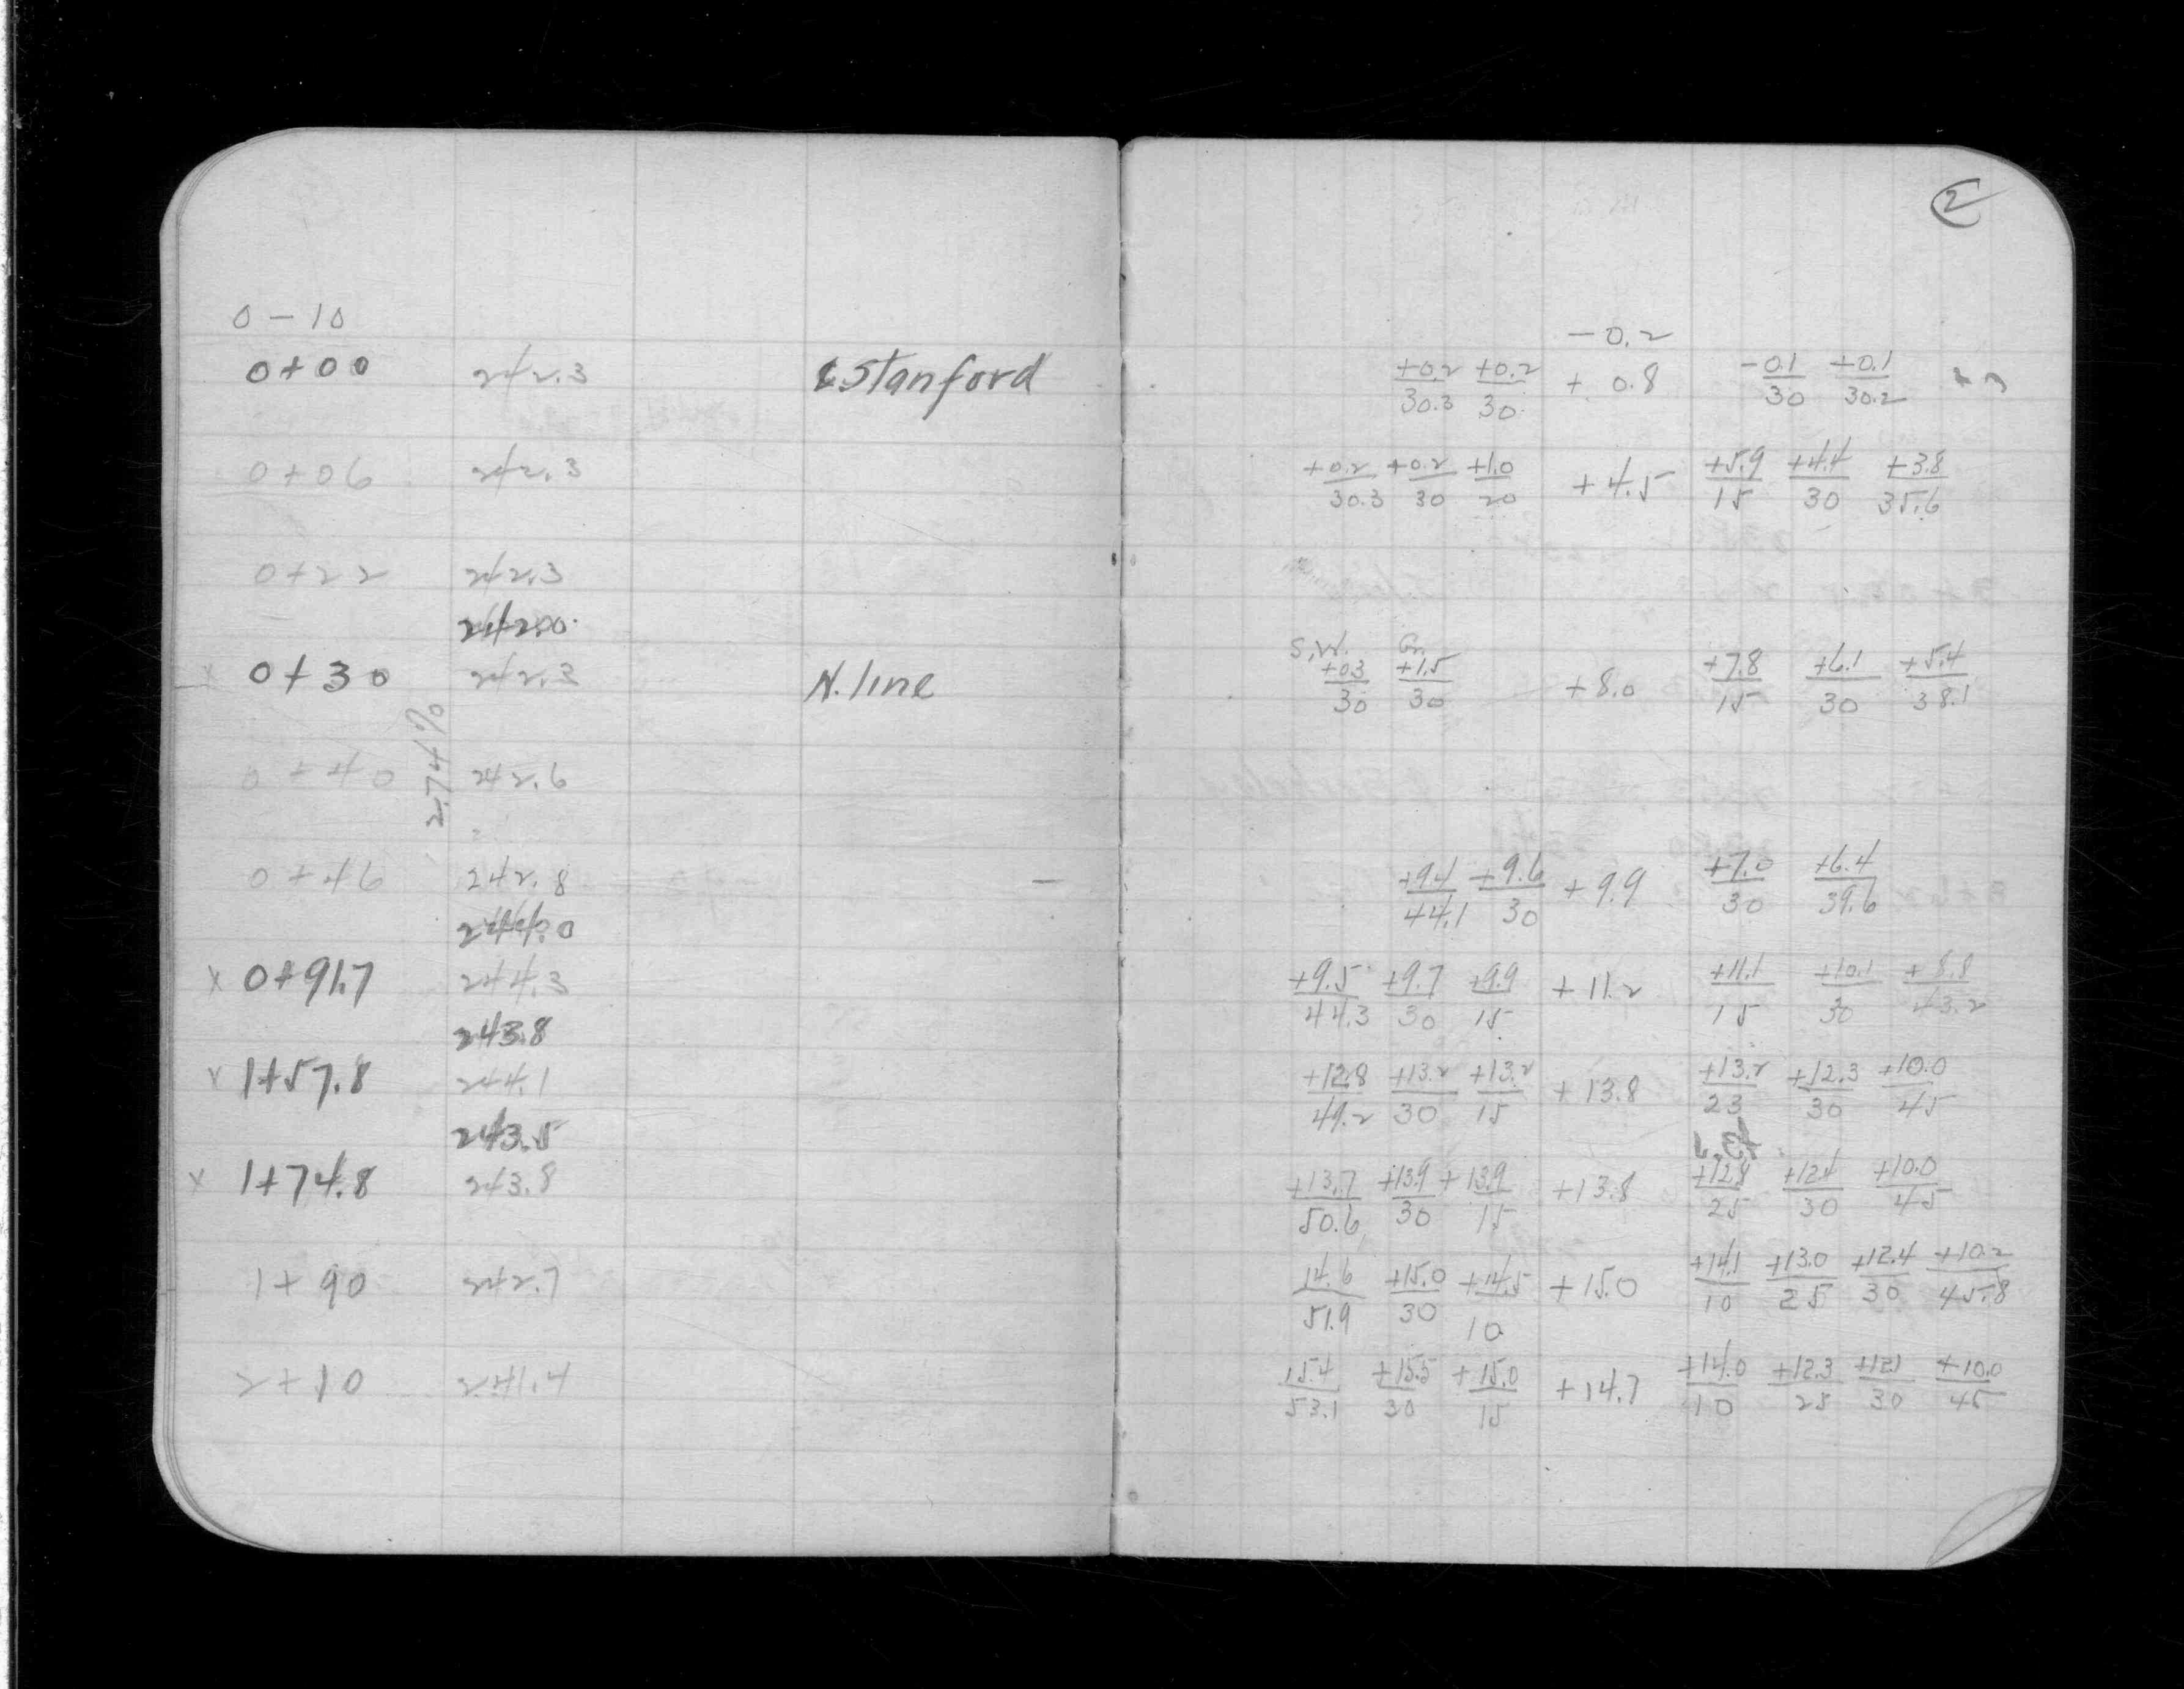 2
0 - 10 -0.2
0+00 242.3 ℄ Stanford +0.2/30.3 +0.2/30 + 0.8 -0.1/30 +0.1/30.2
0+06 242.3 +0.2/30.3 +0.2/30 +1.0/20 +4.5 +5.9/15 +4.4/30 +3.8/35.6
0+22 242.3
242.0
0+30 242.3 N. line S.W. +0.3/30 Gr. +1.5/30 +8.0 +7.8/15 +6.1/30 +5.4/38.1
2.74%
0+40 242.6
0+46 242.8 +9.4/44.1 +9.6/30 +9.9 +7.0/30 +6.4/39.6
x 0+91.7 244.3 +9.5/44.3 +9.7/30 +9.9/15 +11.2 +11.1/15 +10.1/30 +8.8/43.2
243.8
x 1+57.8 244.1 +12.8/49.2 +13.2/30 +13.2/15 +13.8 +13.2/23 +12.3/30 +10.0/45
243.5
x 1+74.8 243.8 +13.7/50.6 +13.9/30 +13.9/15 +13.8 +12.8/25 +12.4/30 +10.0/45
1+90 242.7 14.6/51.9 +15.0/30 +14.5/10 +15.0 +14.1/10 +13.0/25 +12.4/30 +10.2/45.8
2+10 241.4 15.4/53.1 +15.5/30 +15.0/15 +14.7 +14.0/10 +12.3/28 +12.1/30 +10.0/45